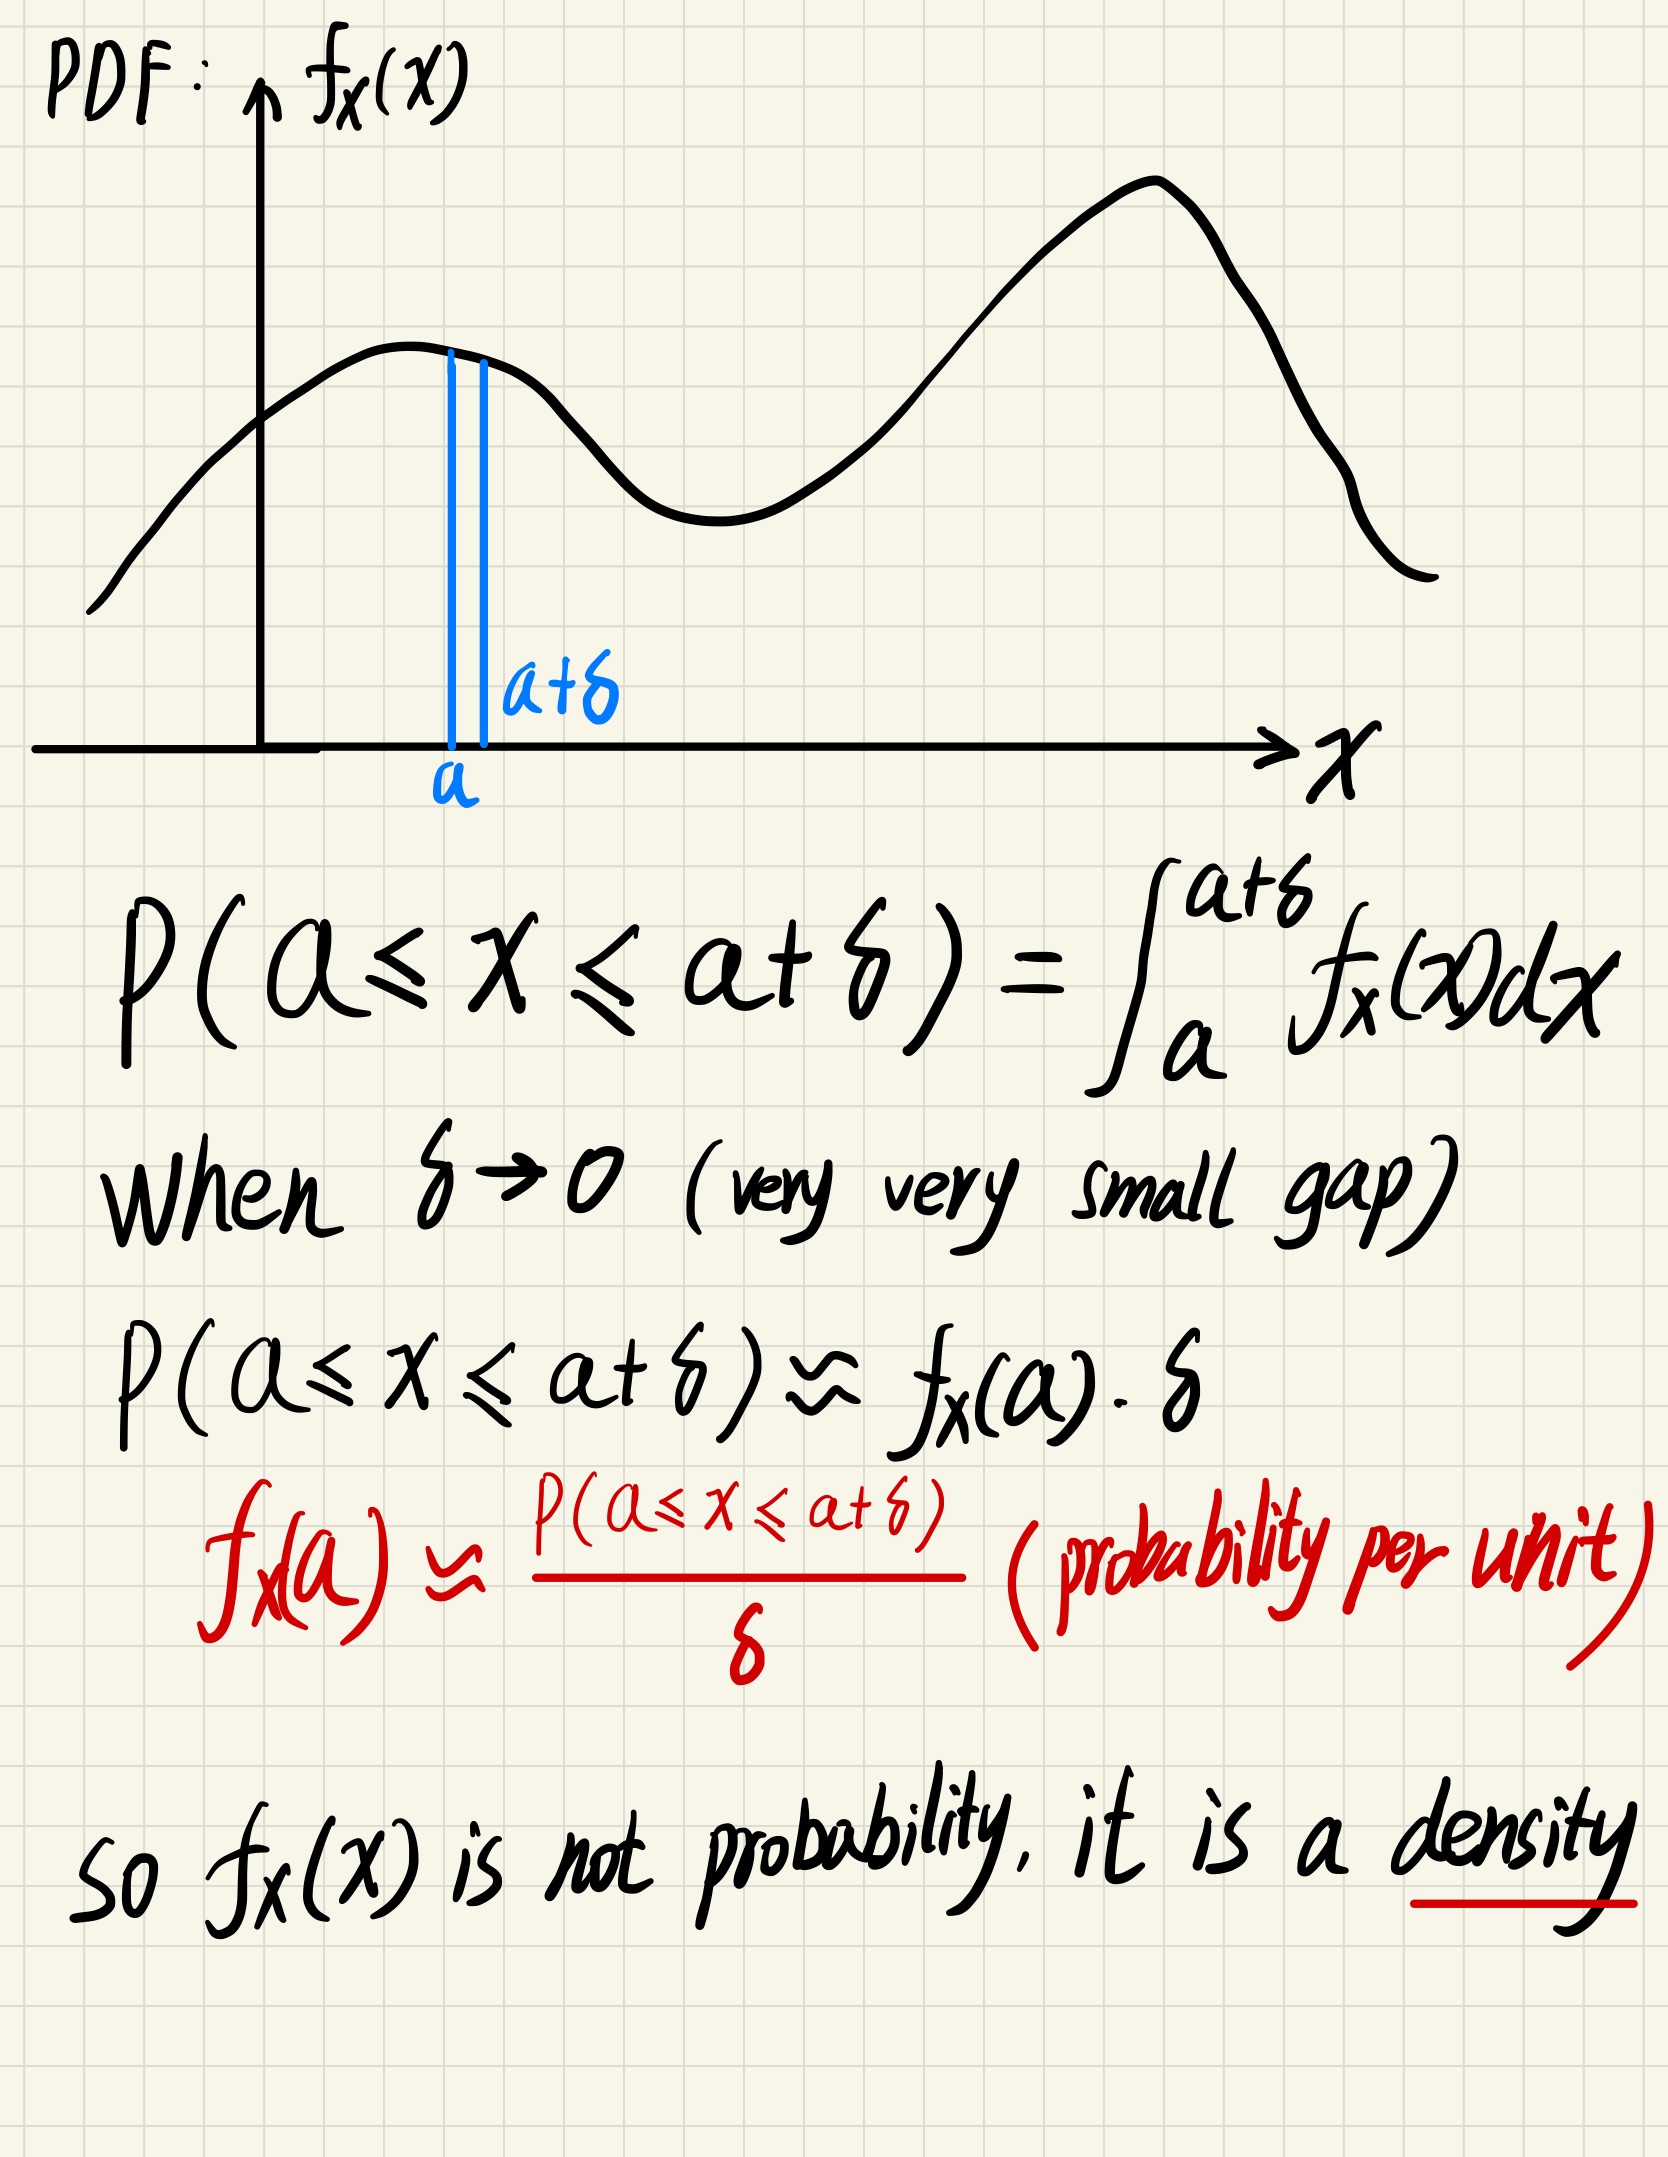 PDF: fₓ(x)
a+δ
x
a
P(a ≤ x ≤ a+δ) = ∫ₐᵃ⁺ᵟ fₓ(x)dx
when δ→0 (very very small gap)
P(a ≤ x ≤ a+δ) ≈ fₓ(a)·δ
fₓ(a) ≈ P(a ≤ x ≤ a+δ) / δ (probability per unit)
so fₓ(x) is not probability, it is a density